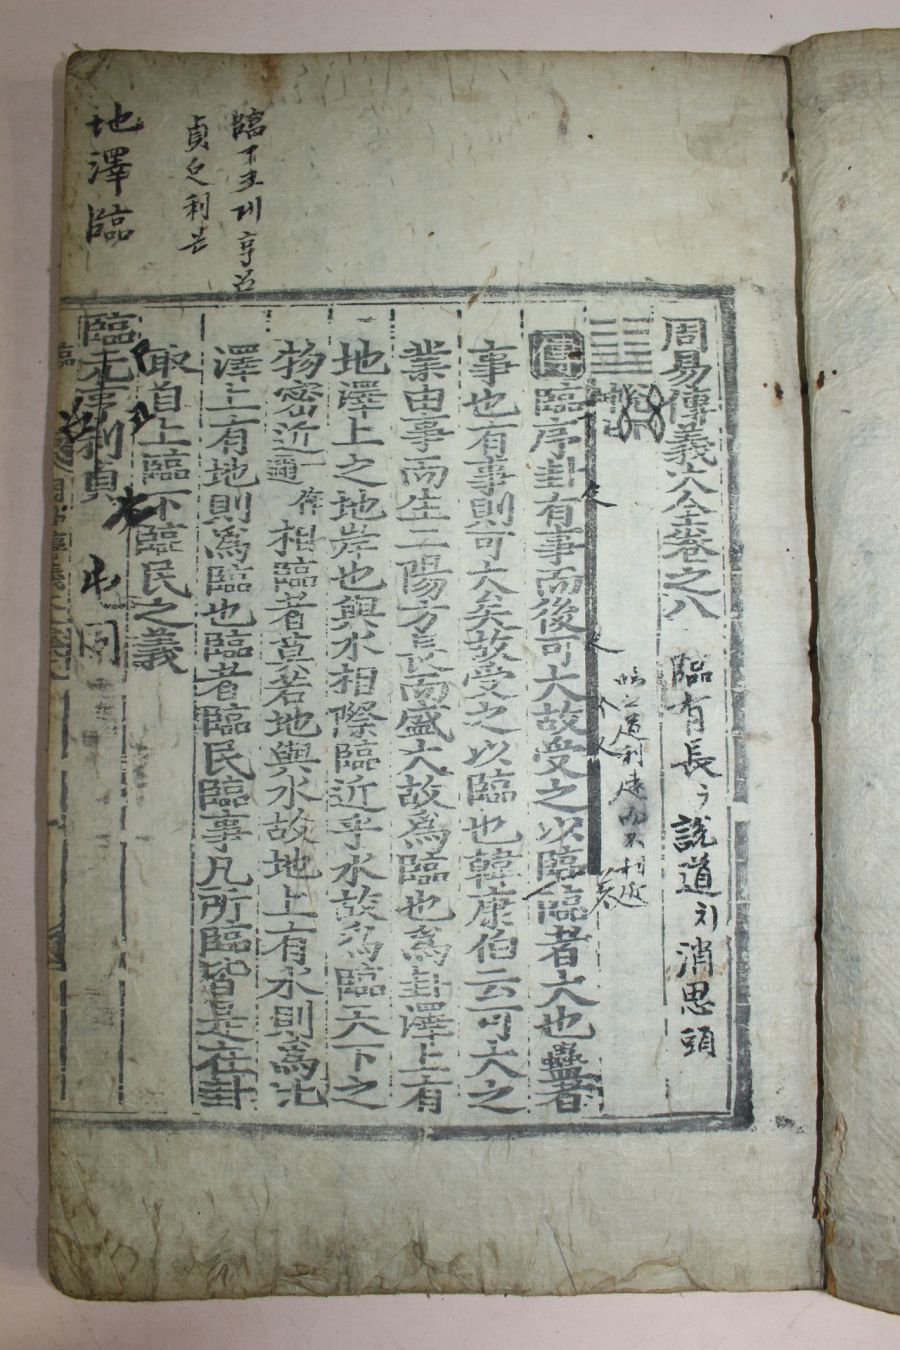 周易傳義大全卷之八
臨有長 說道 消思頭
傳臨序卦有事而後可大故受之以臨臨者大也蠱者
事也有事則可大矣故受之以臨也韓康伯云可大之
業由事而生二陽方長而盛大故爲臨也爲卦澤上有
地澤上之地岸也與水相際臨近乎水故爲臨天下之
物密近一作邇相臨者莫若地與水故地上有水則爲比
澤上有地則爲臨也臨者臨民臨事凡所臨皆是在卦
取自上臨下臨民之義
臨元亨利貞
地澤臨